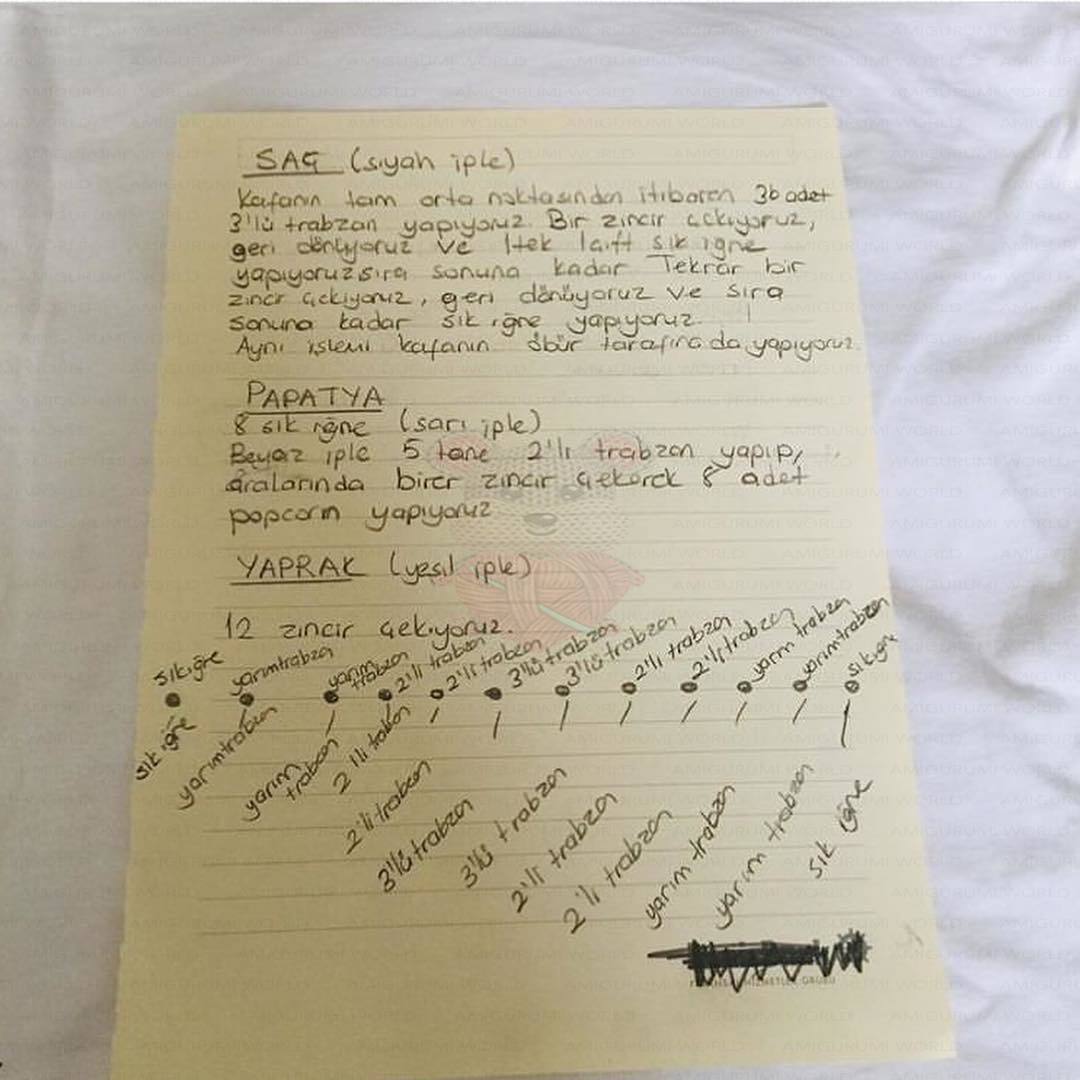 SAÇ (siyah iple)
Kafanın tam orta noktasından itibaren 36 adet
3'lü trabzan yapıyoruz. Bir zincir çekiyoruz,
geri dönüyoruz ve 1tek 1çift sık iğne
yapıyoruz sıra sonuna kadar Tekrar bir
zincir çekiyoruz, geri dönüyoruz ve sıra
sonuna kadar sık iğne yapıyoruz.
Aynı işlemi kafanın öbür tarafına da yapıyoruz.
PAPATYA
8 sık iğne (sarı iple)
Beyaz iple 5 tane 2'li trabzan yapıp,
aralarında birer zincir çekerek 8 adet
popcorn yapıyoruz
YAPRAK (yeşil iple)
12 zincir çekiyoruz.
sık iğne yarım trabzan yarım trabzan 2'li trabzan 2'li trabzan 3'lü trabzan 3'lü trabzan 2'li trabzan 2'li trabzan yarım trabzan yarım trabzan sık iğne
sık iğne yarım trabzan yarım trabzan 2'li trabzan 2'li trabzan 3'lü trabzan 3'lü trabzan 2'li trabzan 2'li trabzan yarım trabzan yarım trabzan sık iğne
HİZMETLER GRUBU
AMIGURUMI WORLD